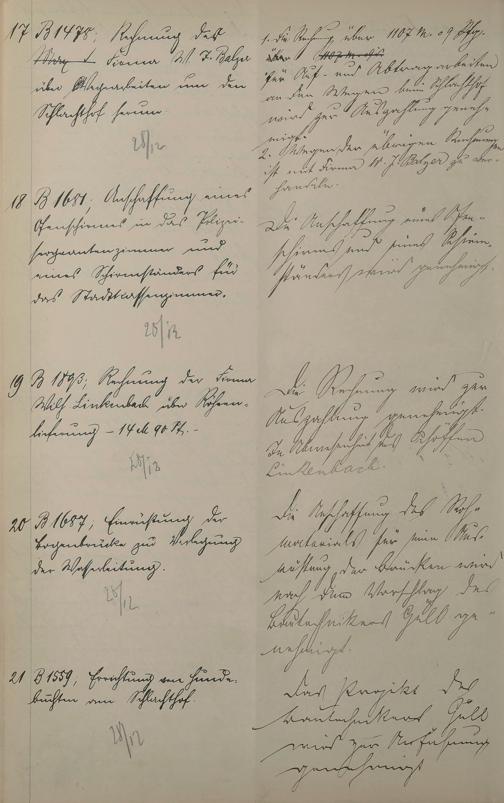 17 B 1478, Rechnung der
Firma W. J. Balzer
über Wegearbeiten um den
Schlachthof herum.
28/12
1. Die Rechnung über 1107 M. 09 Pfg.
für Auf- und Abtragarbeiten
an den Wegen beim Schlachthof
wird zur Auszahlung geneh-
migt.
2. Wegen der übrigen Rechnung
ist mit Firma W. J. Balzer zu ver-
handeln.
18 B 1681, Anschaffung eines
Ofenschirmes in das Polizei-
sergeantenzimmer und
eines Schirmständers für
das Stadtkassenzimmer.
28/12
Die Anschaffung eines Ofen-
schirmes und eines Schirm-
ständers wird genehmigt.
19 B 1893; Rechnung der Firma
Wilh. Linkenbach über Röhren-
lieferung – 14 M 90 Pf. –
28/12
Die Rechnung wird zur
Auszahlung genehmigt.
In Abwesenheit des Schöffen
Linkenbach.
20 B 1687, Einrüstung der
Bogenbrücke zu Verlegung
der Wasserleitung.
28/12
Die Anschaffung des Roh-
materials für eine Aus-
rüstung der Brücken wird
nach dem Vorschlag des
Bautechnikers Güll ge-
nehmigt.
21 B 1559, Errichtung von Hunde-
buchten am Schlachthof.
28/12
Das Projekt des
Bautechnikers Güll
wird zur Ausführung
genehmigt